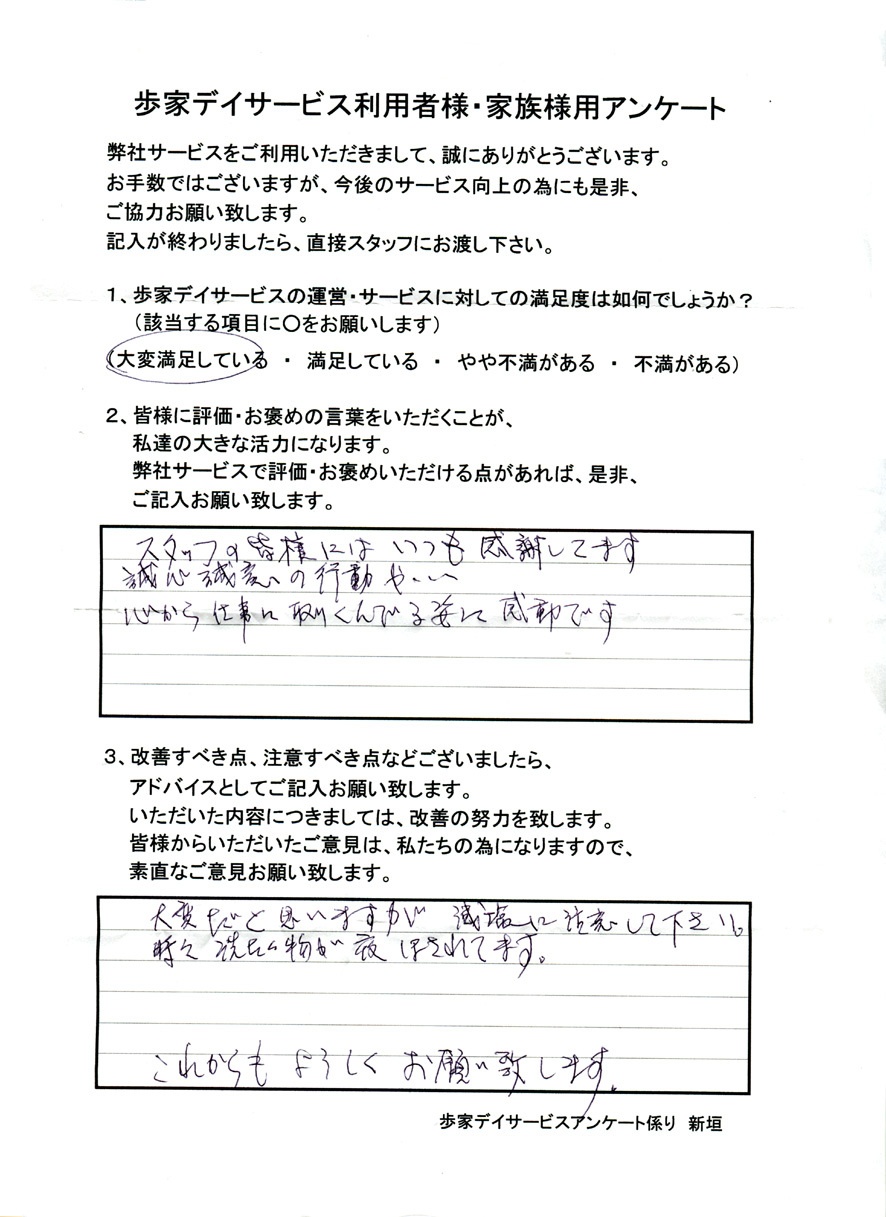 歩家デイサービス利用者様・家族様用アンケート
弊社サービスをご利用いただきまして、誠にありがとうございます。
お手数ではございますが、今後のサービス向上の為にも是非、
ご協力お願い致します。
記入が終わりましたら、直接スタッフにお渡し下さい。
1、歩家デイサービスの運営・サービスに対しての満足度は如何でしょうか？
（該当する項目に〇をお願いします）
（大変満足している ・ 満足している ・ やや不満がある ・ 不満がある）
2、皆様に評価・お褒めの言葉をいただくことが、
私達の大きな活力になります。
弊社サービスで評価・お褒めいただける点があれば、是非、
ご記入お願い致します。
スタッフの皆様にはいつも感謝してます
誠心誠意の行動や…
心から仕事に取りくんでる姿に感動です
3、改善すべき点、注意すべき点などございましたら、
アドバイスとしてご記入お願い致します。
いただいた内容につきましては、改善の努力を致します。
皆様からいただいたご意見は、私たちの為になりますので、
素直なご意見お願い致します。
大変だと思いますが 減塩に注意して下さい。
時々洗たく物が夜ほされてます。
これからもよろしくお願い致します。
歩家デイサービスアンケート係り 新垣